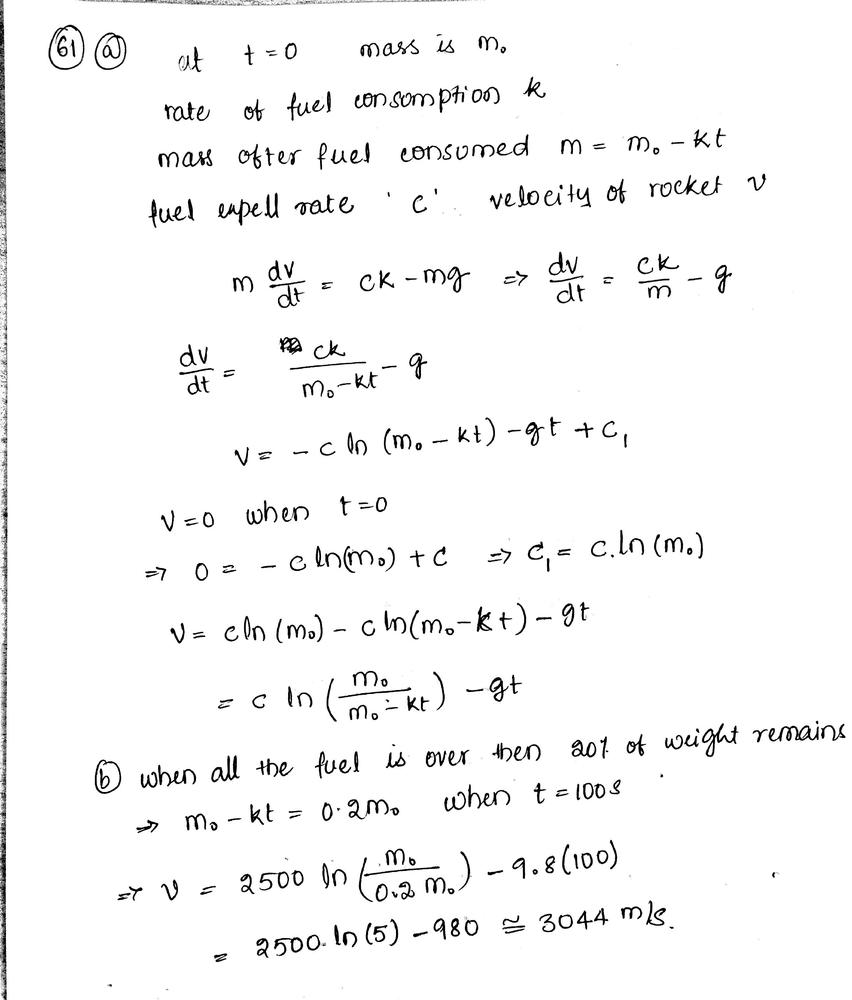 61 a at t = 0 mass is m₀
rate of fuel consomption k
mass ofter fuel consomed m = m₀ - kt
fuel expell rate 'c' velocity of rocket v
m dv/dt = ck - mg ⇒ dv/dt = ck/m - g
dv/dt = ck/(m₀-kt) - g
v = - c ln (m₀ - kt) - gt + c₁
v = 0 when t = 0
⇒ 0 = - c ln(m₀) + c ⇒ c₁ = c.ln (m₀)
v = cln (m₀) - c ln(m₀-kt) - gt
= c ln (m₀/(m₀-kt)) - gt
b when all the fuel is over then 20% of weight remains
⇒ m₀ - kt = 0.2m₀ when t = 100s
⇒ v = 2500 ln (m₀/(0.2 m₀)) - 9.8(100)
= 2500. ln (5) - 980 ≅ 3044 m/s.